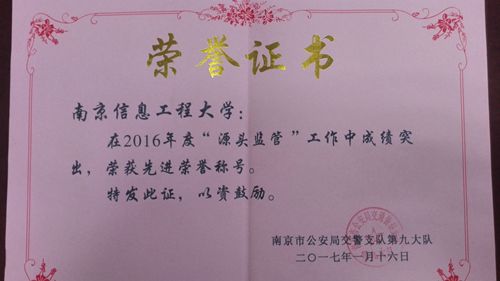 荣誉证书
南京信息工程大学：
在2016年度“源头监管”工作中成绩突
出，荣获先进荣誉称号。
特发此证，以资鼓励。
南京市公安局交警支队第九大队
二〇一七年一月十六日